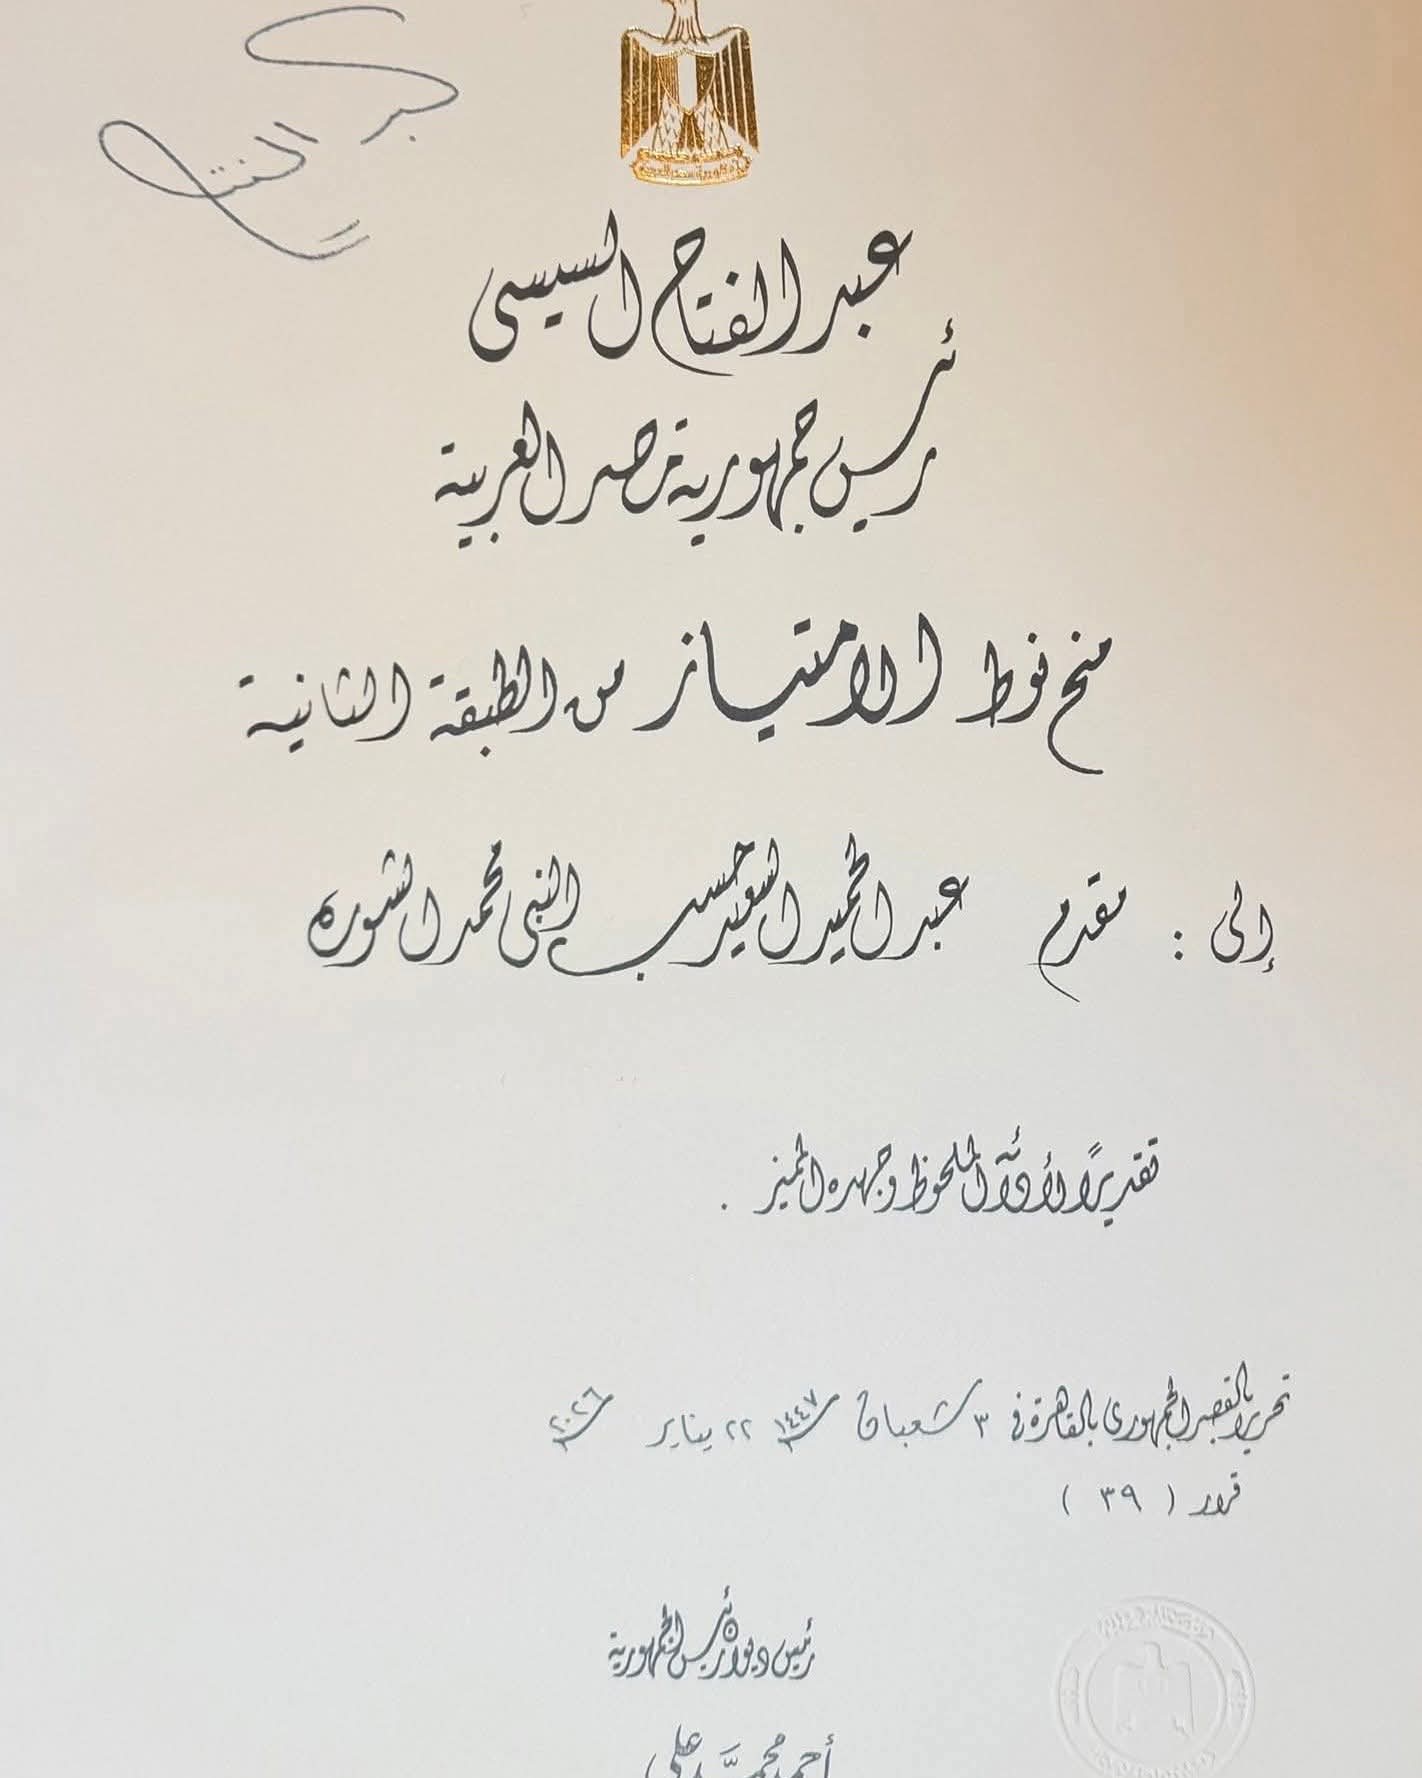 عبد الفتاح السيسى
رئيس جمهورية مصر العربية
منح نوط الامتياز من الطبقة الثانية
إلى : مقدم عبد الحميد السعيد حسب النبى محمد الشوره
تقديرًا لأدائه الملحوظ وجهده المميز .
تحريرا بالقصر الجمهورى بالقاهرة فى ٣ شعبان ١٤٤٧ ٢٢ يناير ٢٠٢٦
قرار ( ٣٩ )
رئيس ديوان رئيس الجمهورية
أحمد محمد على